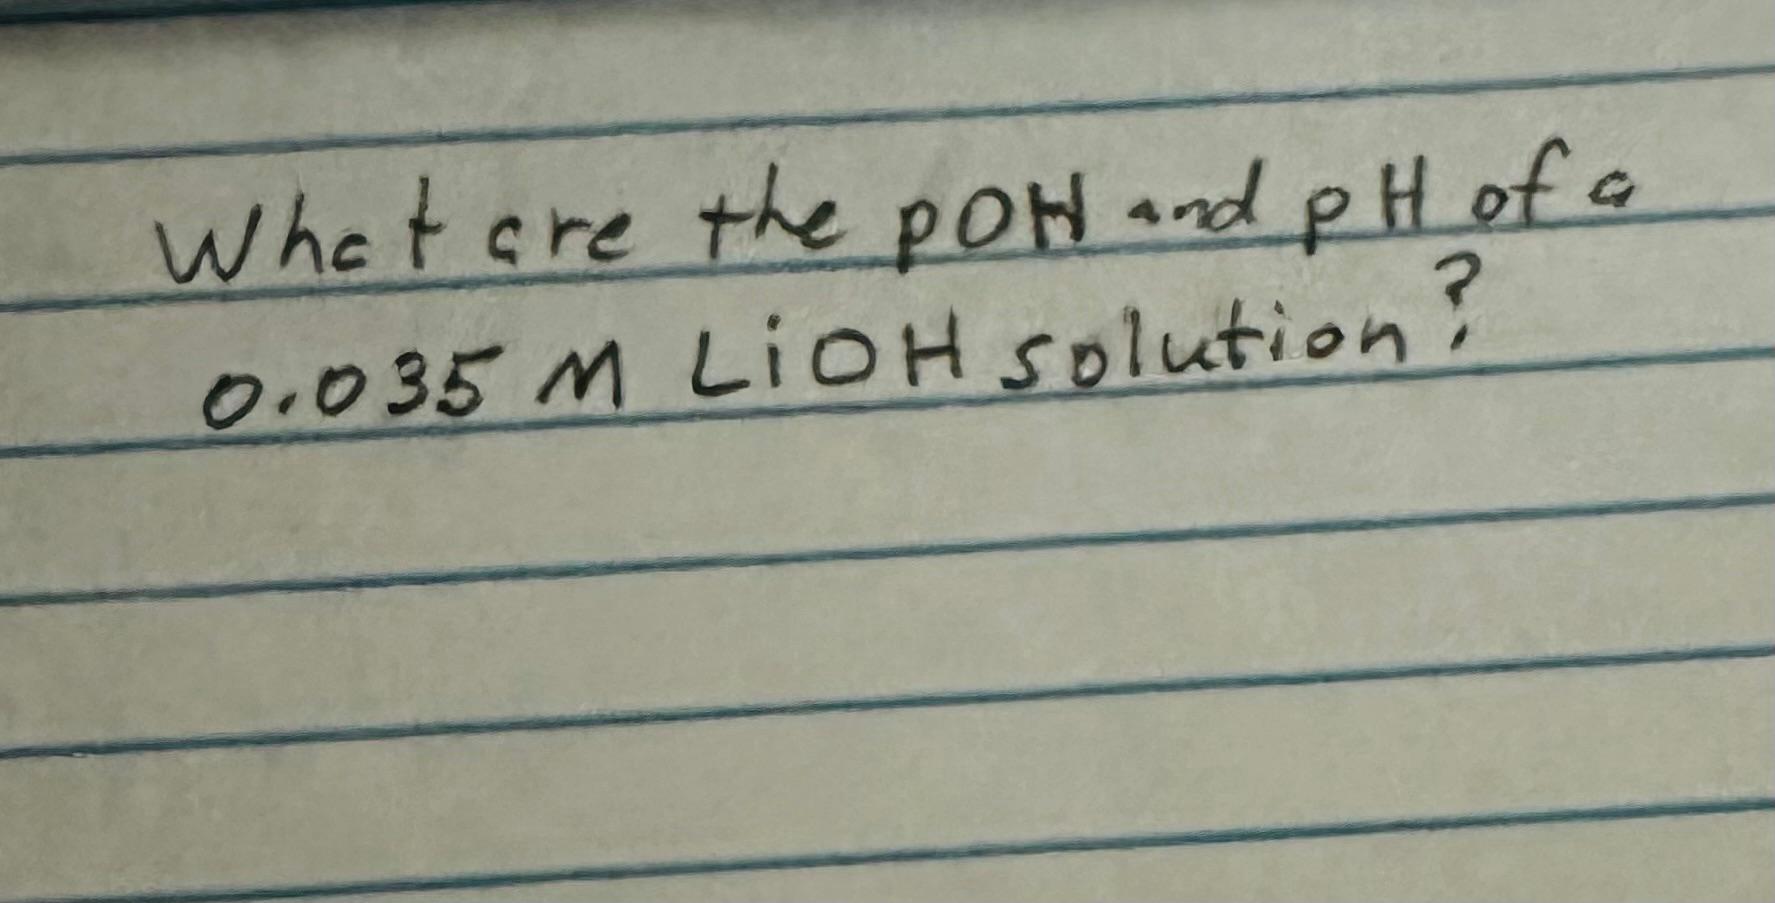 What are the pOH and pH of a
0.035 M LiOH solution?